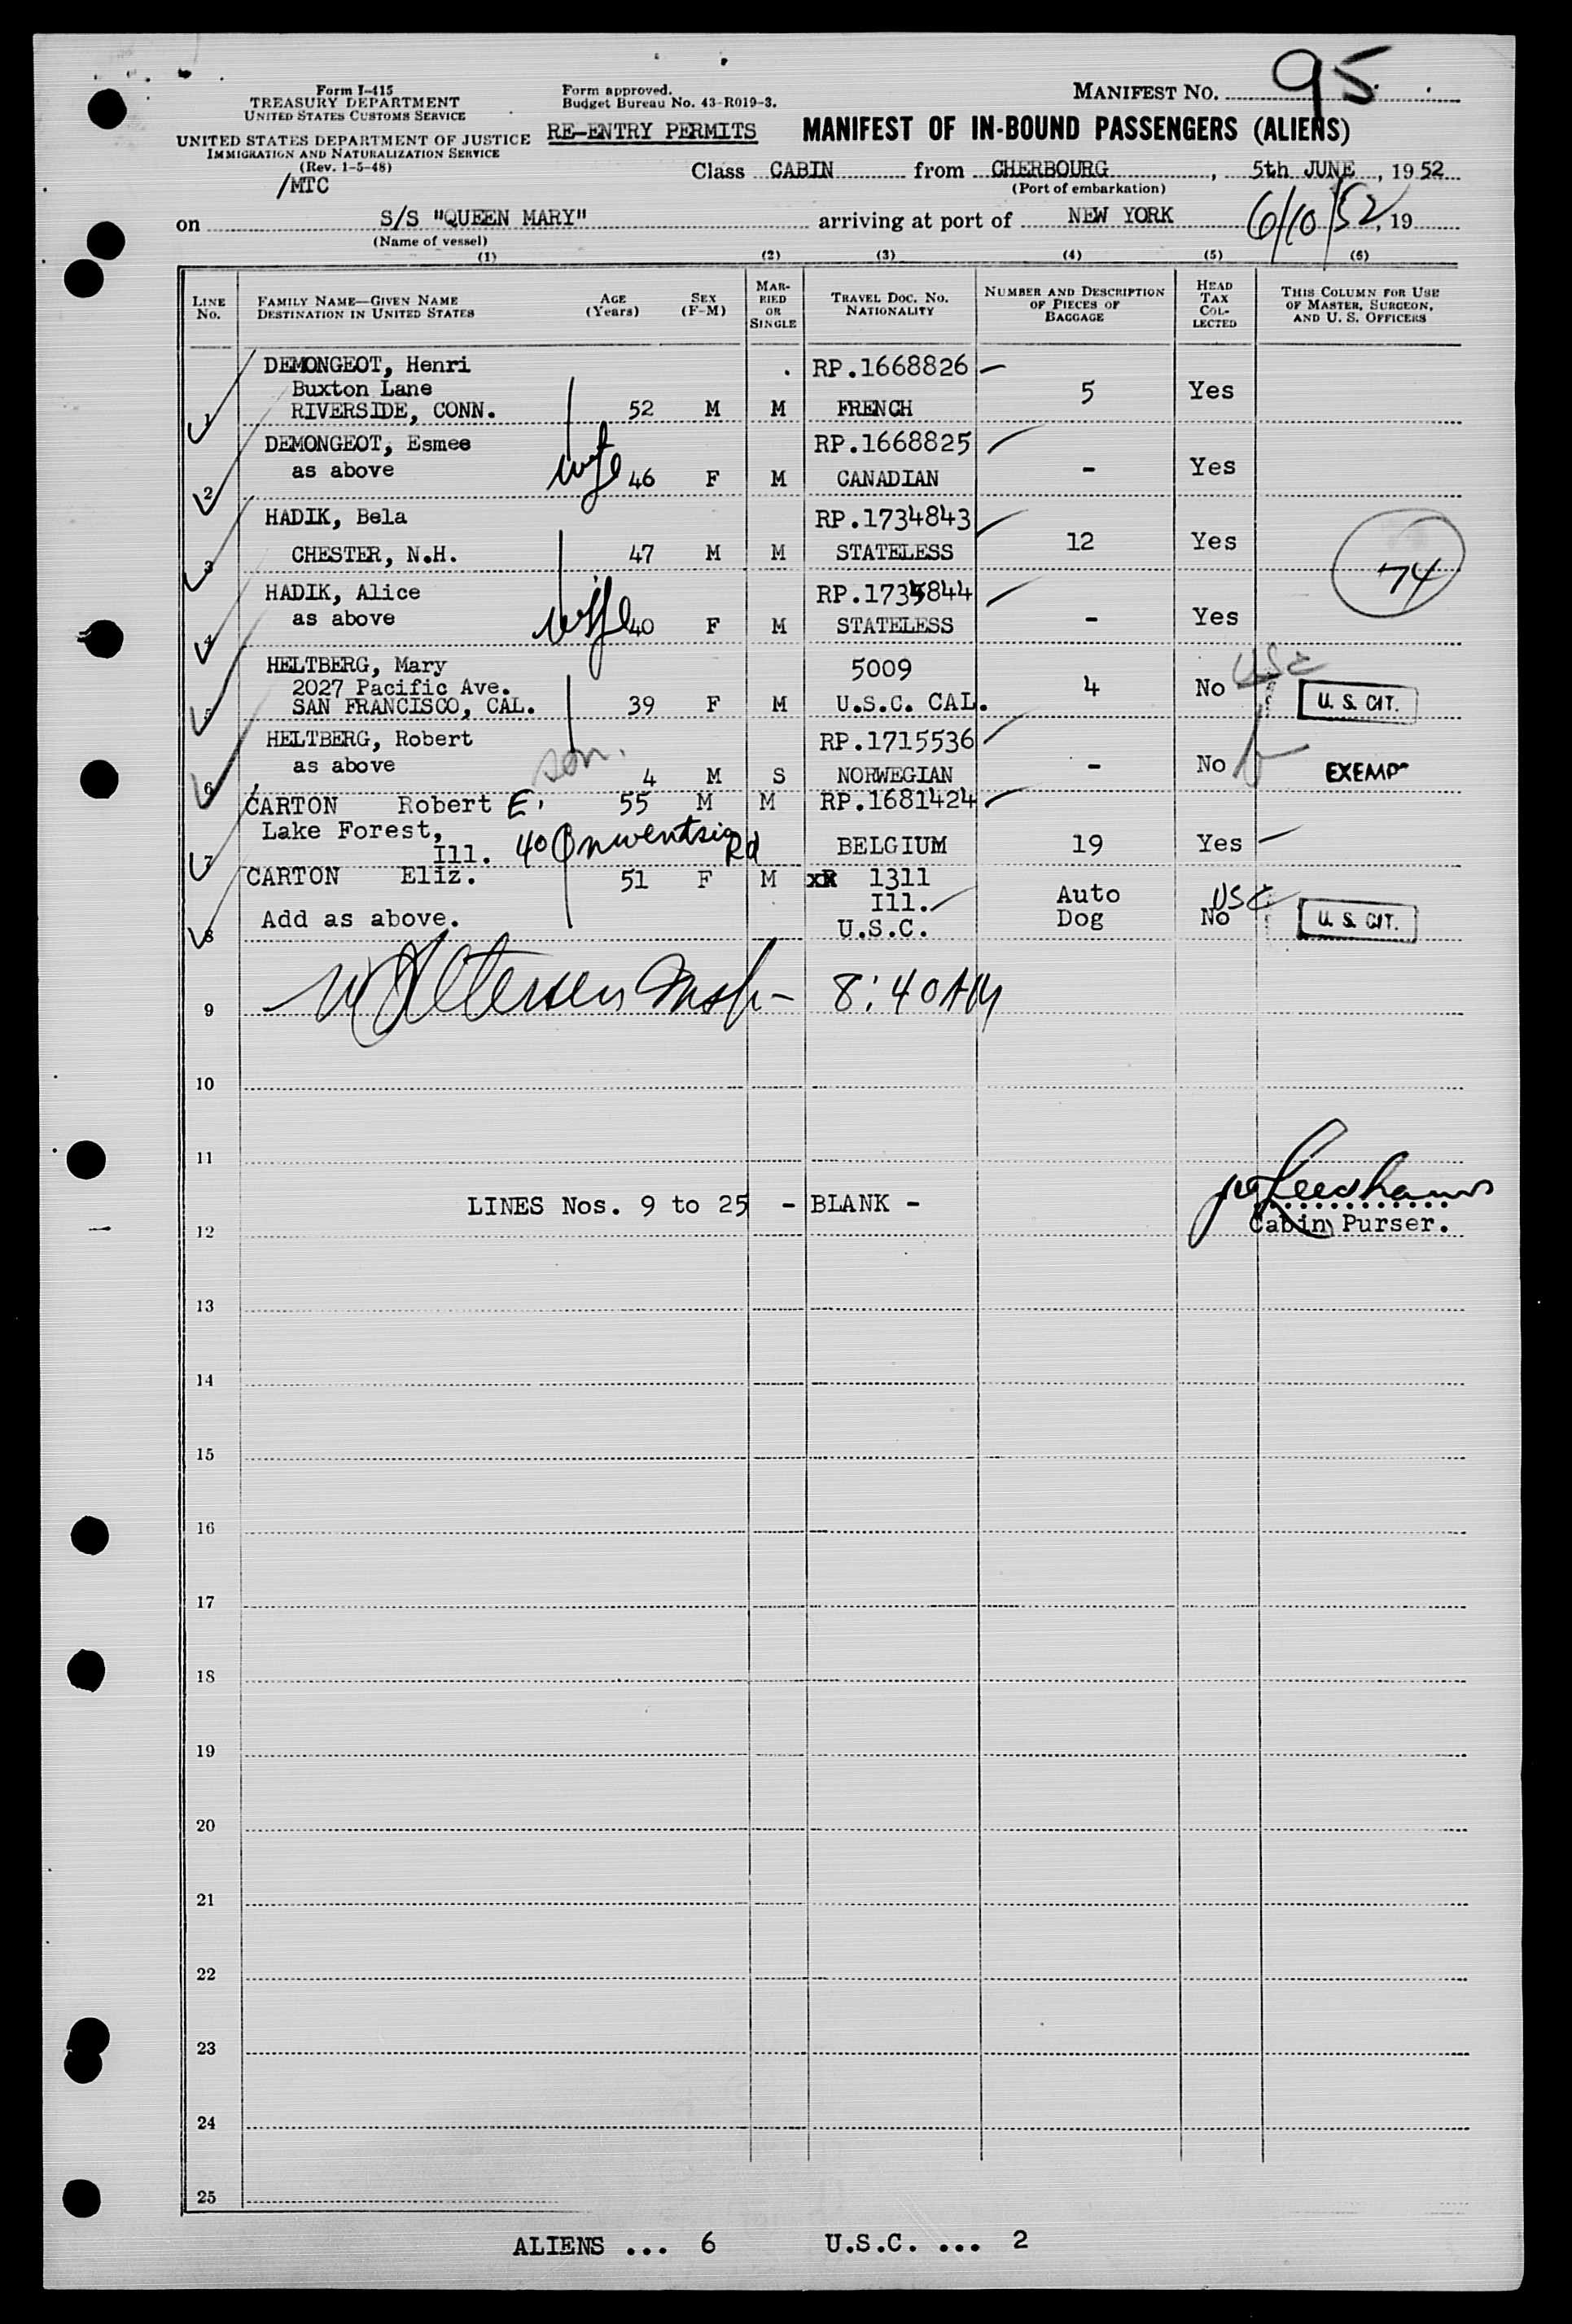 Form I-415
TREASURY DEPARTMENT
UNITED STATES CUSTOMS SERVICE
UNITED STATES DEPARTMENT OF JUSTICE
IMMIGRATION AND NATURALIZATION SERVICE
(Rev. 1-5-48)
/MTC
Form approved.
Budget Bureau No. 43-R019-3.
RE-ENTRY PERMITS
MANIFEST NO. 95
MANIFEST OF IN-BOUND PASSENGERS (ALIENS)
Class CABIN from CHERBOURG, 5th JUNE, 1952
(Port of embarkation)
on S/S "QUEEN MARY" arriving at port of NEW YORK 6/10/52, 19
(Name of vessel)
(1) (2) (3) (4) (5) (6)
LINE No.
FAMILY NAME—GIVEN NAME
DESTINATION IN UNITED STATES
AGE (Years)
SEX (F-M)
MARRIED OR SINGLE
TRAVEL DOC. NO.
NATIONALITY
NUMBER AND DESCRIPTION OF PIECES OF BAGGAGE
HEAD TAX COLLECTED
THIS COLUMN FOR USE OF MASTER, SURGEON, AND U. S. OFFICERS
DEMONGEOT, Henri RP.1668826
Buxton Lane 5 Yes
1 RIVERSIDE, CONN. 52 M M FRENCH
DEMONGEOT, Esmee RP.1668825
as above - Yes
2 wife 46 F M CANADIAN
HADIK, Bela RP.1734843
12 Yes
3 CHESTER, N.H. 47 M M STATELESS
74
HADIK, Alice RP.1734844
as above - Yes
4 wife 40 F M STATELESS
HELTBERG, Mary 5009 USC
2027 Pacific Ave. 4 No
5 SAN FRANCISCO, CAL. 39 F M U.S.C. CAL. U. S. CIT.
HELTBERG, Robert RP.1715536
as above son. - No EXEMP
6 4 M S NORWEGIAN
CARTON Robert E. 55 M M RP.1681424
Lake Forest,
7 Ill. 40 Onwentsia Rd BELGIUM 19 Yes
CARTON Eliz. 51 F M xR 1311
Ill. Auto USC
8 Add as above. U.S.C. Dog No U. S. CIT.
9 Insp- 8:40 AM
10
11
LINES Nos. 9 to 25 - BLANK -
12 Cabin Purser.
13
14
15
16
17
18
19
20
21
22
23
24
25
ALIENS ... 6 U.S.C. ... 2